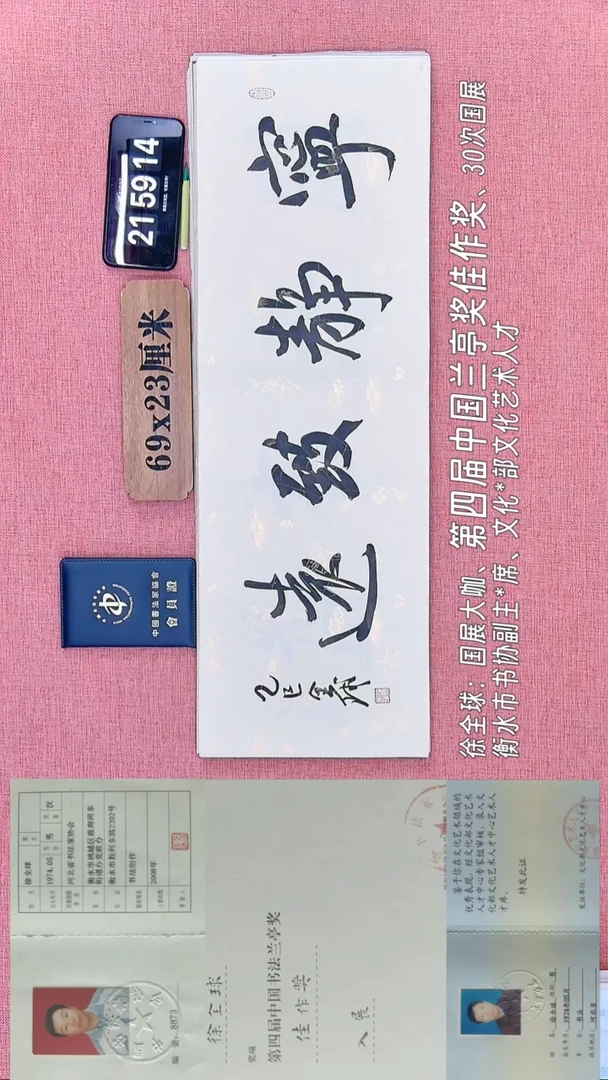 21 59 14
69x23厘米
中國書法家協會
會員證
寧静致遠
乙巳全球
徐全球：国展大咖、第四届中国兰亭奖佳作奖、30次国展
衡水市书协副主*席、文化*部文化艺术人才
徐全球
1974.05 男 汉
河北省书法家协会
衡水市桃城区政府河东
街道办党政办
书法创作
2008年
8873
徐全球
奖项
第四届中国书法兰亭奖
佳作奖
入展
鉴于你在文化艺术领域的
优秀表现，经文化部文化艺术
人才中心专家组审核，录入文
化部文化艺术人才中心艺术人
才库。
特发此证
徐全球
书法